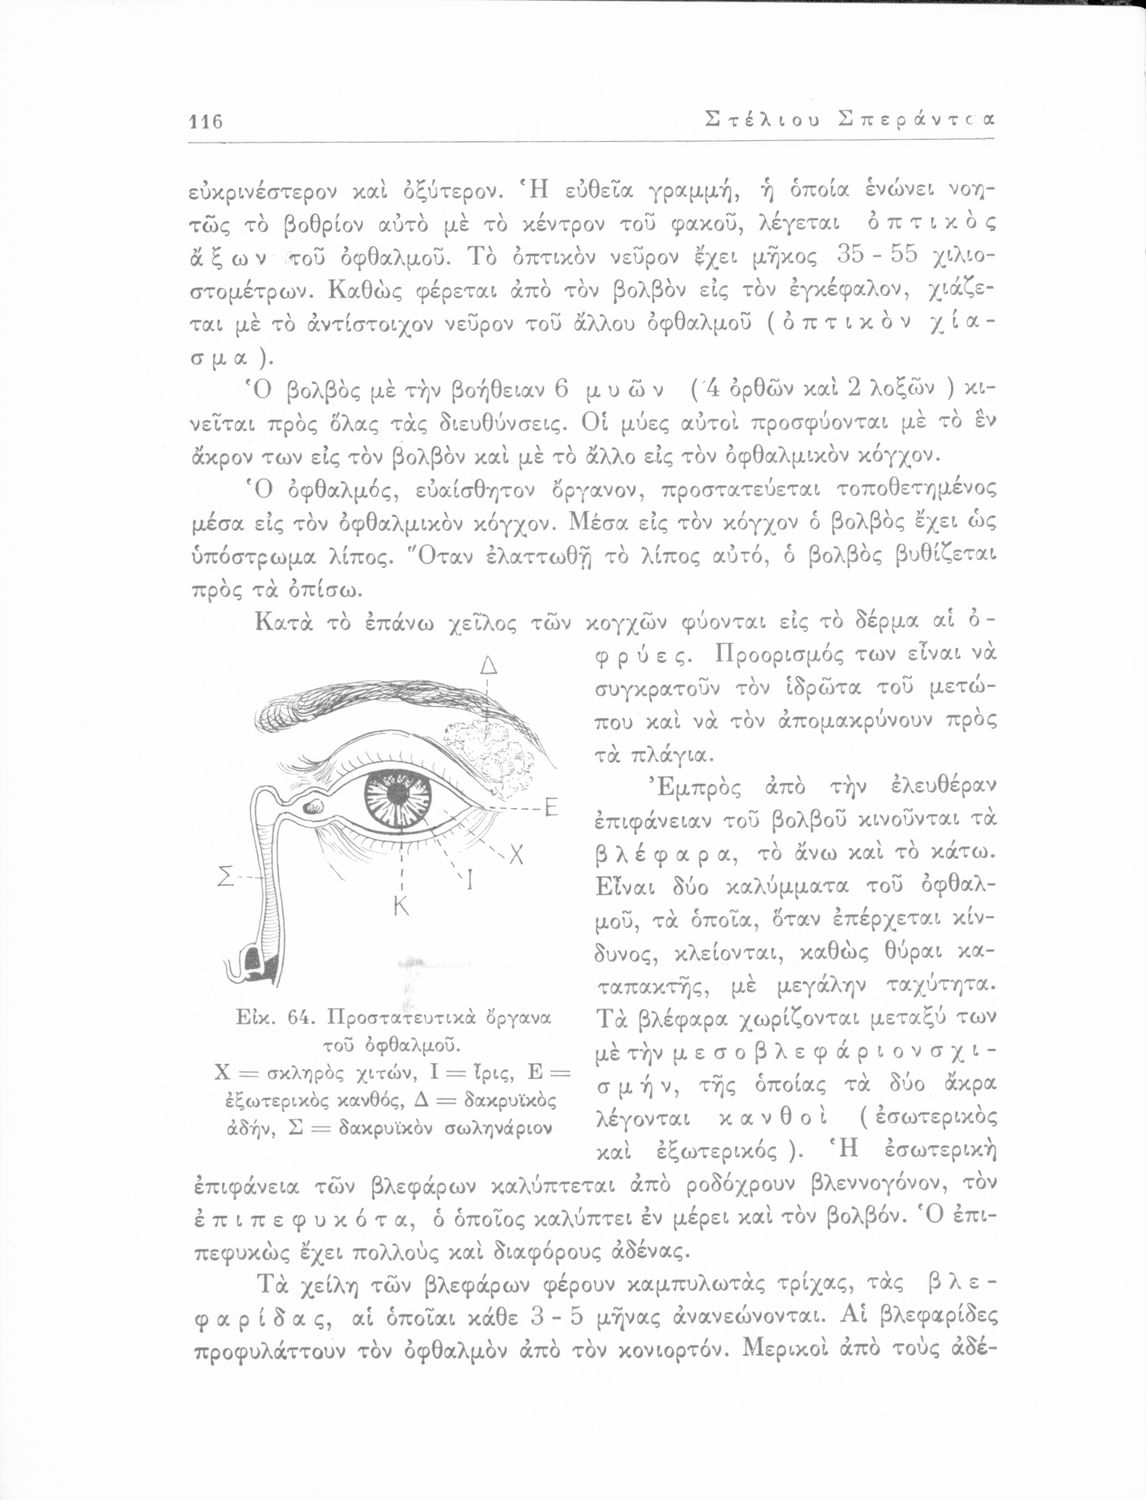 116
Στέλιου Σπεράντσα
εὐκρινέστερον καὶ ὀξύτερον. Ἡ εὐθεῖα γραμμή, ἡ ὁποία ἑνώνει νοη-
τῶς τὸ βοθρίον αὐτὸ μὲ τὸ κέντρον τοῦ φακοῦ, λέγεται ὀπτικὸς
ἄξων τοῦ ὀφθαλμοῦ. Τὸ ὀπτικὸν νεῦρον ἔχει μῆκος 35 - 55 χιλιο-
στομέτρων. Καθὼς φέρεται ἀπὸ τὸν βολβὸν εἰς τὸν ἐγκέφαλον, χιάζε-
ται μὲ τὸ ἀντίστοιχον νεῦρον τοῦ ἄλλου ὀφθαλμοῦ (ὀπτικὸν χία-
σμα).
Ὁ βολβὸς μὲ τὴν βοήθειαν 6 μυῶν (4 ὀρθῶν καὶ 2 λοξῶν ) κι-
νεῖται πρὸς ὅλας τὰς διευθύνσεις. Οἱ μύες αὐτοὶ προσφύονται μὲ τὸ ἓν
ἄκρον των εἰς τὸν βολβὸν καὶ μὲ τὸ ἄλλο εἰς τὸν ὀφθαλμικὸν κόγχον.
Ὁ ὀφθαλμός, εὐαίσθητον ὄργανον, προστατεύεται τοποθετημένος
μέσα εἰς τὸν ὀφθαλμικὸν κόγχον. Μέσα εἰς τὸν κόγχον ὁ βολβὸς ἔχει ὡς
ὑπόστρωμα λίπος. Ὅταν ἐλαττωθῇ τὸ λίπος αὐτό, ὁ βολβὸς βυθίζεται
πρὸς τὰ ὀπίσω.
Κατὰ τὸ ἐπάνω χεῖλος τῶν κογχῶν φύονται εἰς τὸ δέρμα αἱ ὀ-
φρύες. Προορισμός των εἶναι νὰ
συγκρατοῦν τὸν ἱδρῶτα τοῦ μετώ-
που καὶ νὰ τὸν ἀπομακρύνουν πρὸς
τὰ πλάγια.
Ἐμπρὸς ἀπὸ τὴν ἐλευθέραν
ἐπιφάνειαν τοῦ βολβοῦ κινοῦνται τὰ
βλέφαρα, τὸ ἄνω καὶ τὸ κάτω.
Εἶναι δύο καλύμματα τοῦ ὀφθαλ-
μοῦ, τὰ ὁποῖα, ὅταν ἐπέρχεται κίν-
δυνος, κλείονται, καθὼς θύραι κα-
ταπακτῆς, μὲ μεγάλην ταχύτητα.
Τὰ βλέφαρα χωρίζονται μεταξύ των
μὲ τὴν μεσοβλεφάριον σχι-
σμήν, τῆς ὁποίας τὰ δύο ἄκρα
λέγονται κανθοὶ (ἐσωτερικὸς
καὶ ἐξωτερικός ). Ἡ ἐσωτερικὴ
Δ
Ε
Χ
Ι
Κ
Σ
Εἰκ. 64. Προστατευτικὰ ὄργανα
τοῦ ὀφθαλμοῦ.
Χ = σκληρὸς χιτών, Ι = ἶρις, Ε =
ἐξωτερικὸς κανθός, Δ = δακρυϊκὸς
ἀδήν, Σ = δακρυϊκὸν σωληνάριον
ἐπιφάνεια τῶν βλεφάρων καλύπτεται ἀπὸ ροδόχρουν βλεννογόνον, τὸν
ἐπιπεφυκότα, ὁ ὁποῖος καλύπτει ἐν μέρει καὶ τὸν βολβόν. Ὁ ἐπι-
πεφυκὼς ἔχει πολλοὺς καὶ διαφόρους ἀδένας.
Τὰ χείλη τῶν βλεφάρων φέρουν καμπυλωτὰς τρίχας, τὰς βλε-
φαρίδας, αἱ ὁποῖαι κάθε 3 - 5 μῆνας ἀνανεώνονται. Αἱ βλεφαρίδες
προφυλάττουν τὸν ὀφθαλμὸν ἀπὸ τὸν κονιορτόν. Μερικοὶ ἀπὸ τοὺς ἀδέ-